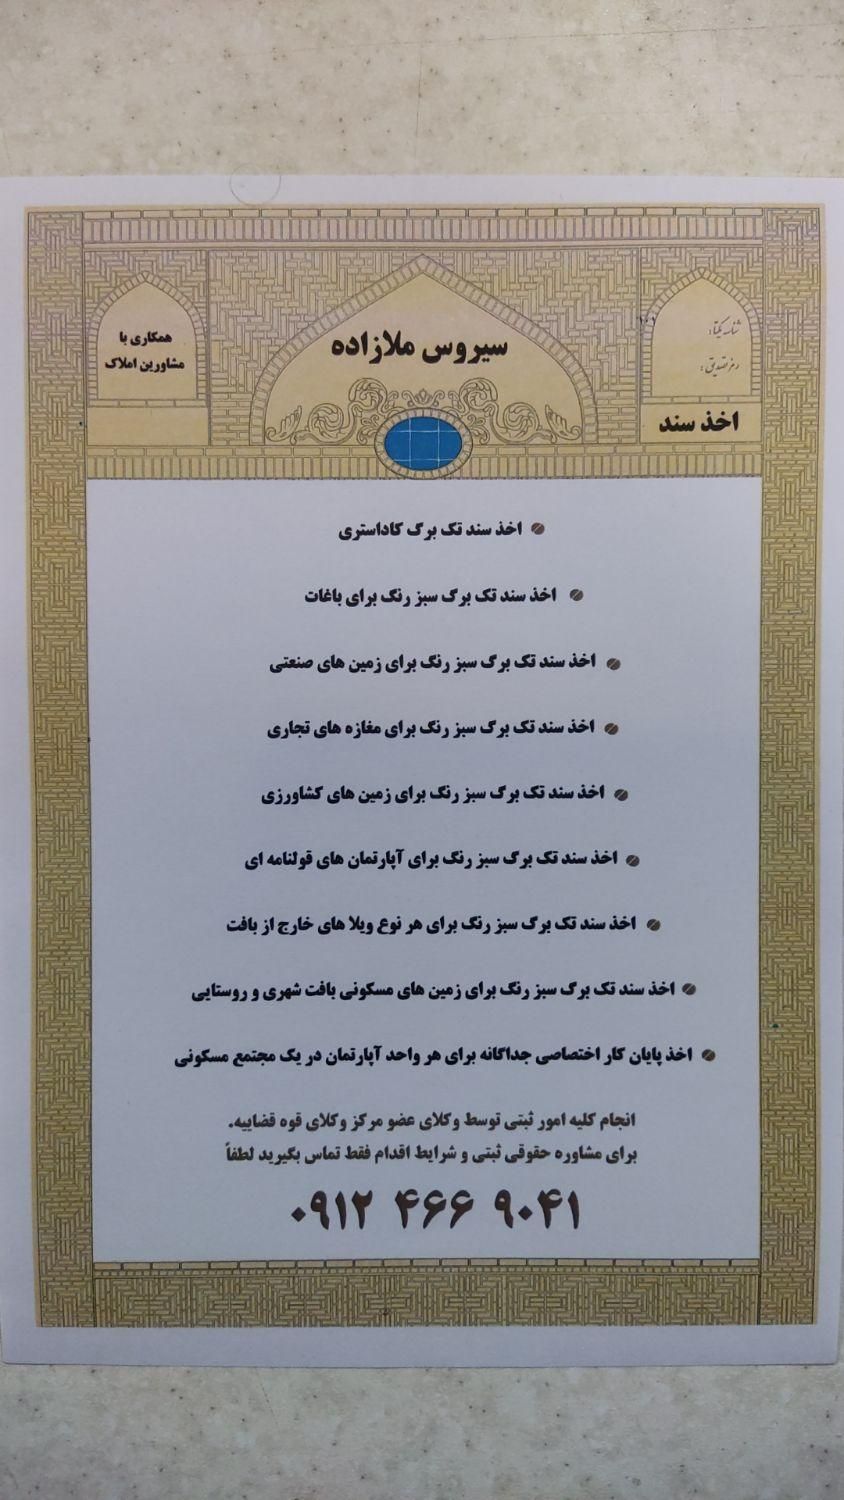 شناسه یکتا:
رمز تصدیق:
اخذ سند
سیروس ملازاده
همکاری با
مشاورین املاک
اخذ سند تک برگ کاداستری
اخذ سند تک برگ سبز رنگ برای باغات
اخذ سند تک برگ سبز رنگ برای زمین های صنعتی
اخذ سند تک برگ سبز رنگ برای مغازه های تجاری
اخذ سند تک برگ سبز رنگ برای زمین های کشاورزی
اخذ سند تک برگ سبز رنگ برای آپارتمان های قولنامه ای
اخذ سند تک برگ سبز رنگ برای هر نوع ویلا های خارج از بافت
اخذ سند تک برگ سبز رنگ برای زمین های مسکونی بافت شهری و روستایی
اخذ پایان کار اختصاصی جداگانه برای هر واحد آپارتمان در یک مجتمع مسکونی
انجام کلیه امور ثبتی توسط وکلای عضو مرکز وکلای قوه قضاییه.
برای مشاوره حقوقی ثبتی و شرایط اقدام فقط تماس بگیرید لطفاً
۰۹۱۲ ۴۶۶ ۹۰۴۱